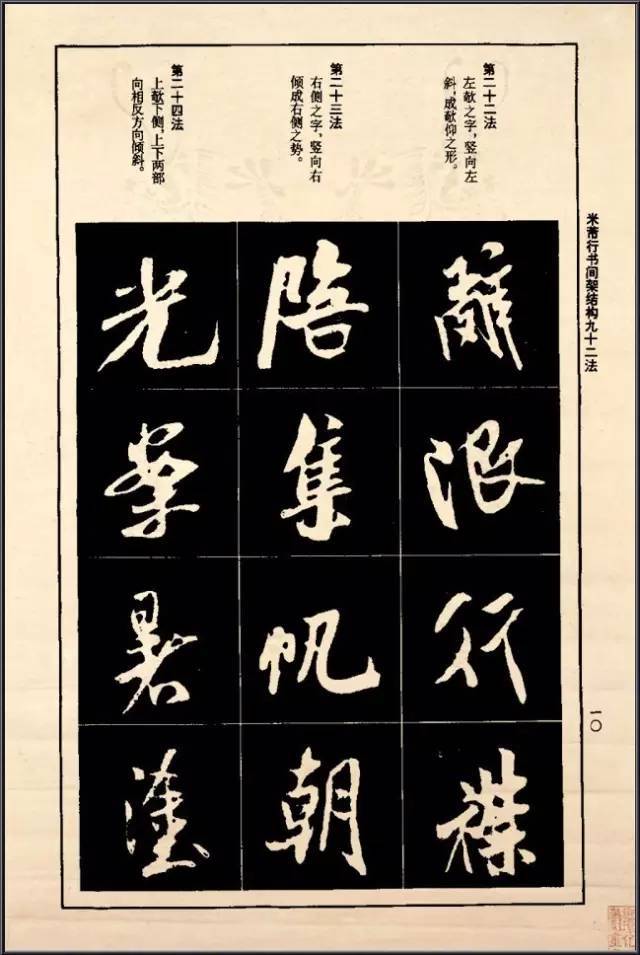 米芾行书间架结构九十二法
一〇
第二十二法
左欹之字，竖向左
斜，成欹仰之形。
第二十三法
右侧之字，竖向右
倾成右侧之势。
第二十四法
上欹下侧，上下两部
向相反方向倾斜。
辭浪行
陪集帆朝
光暑塗